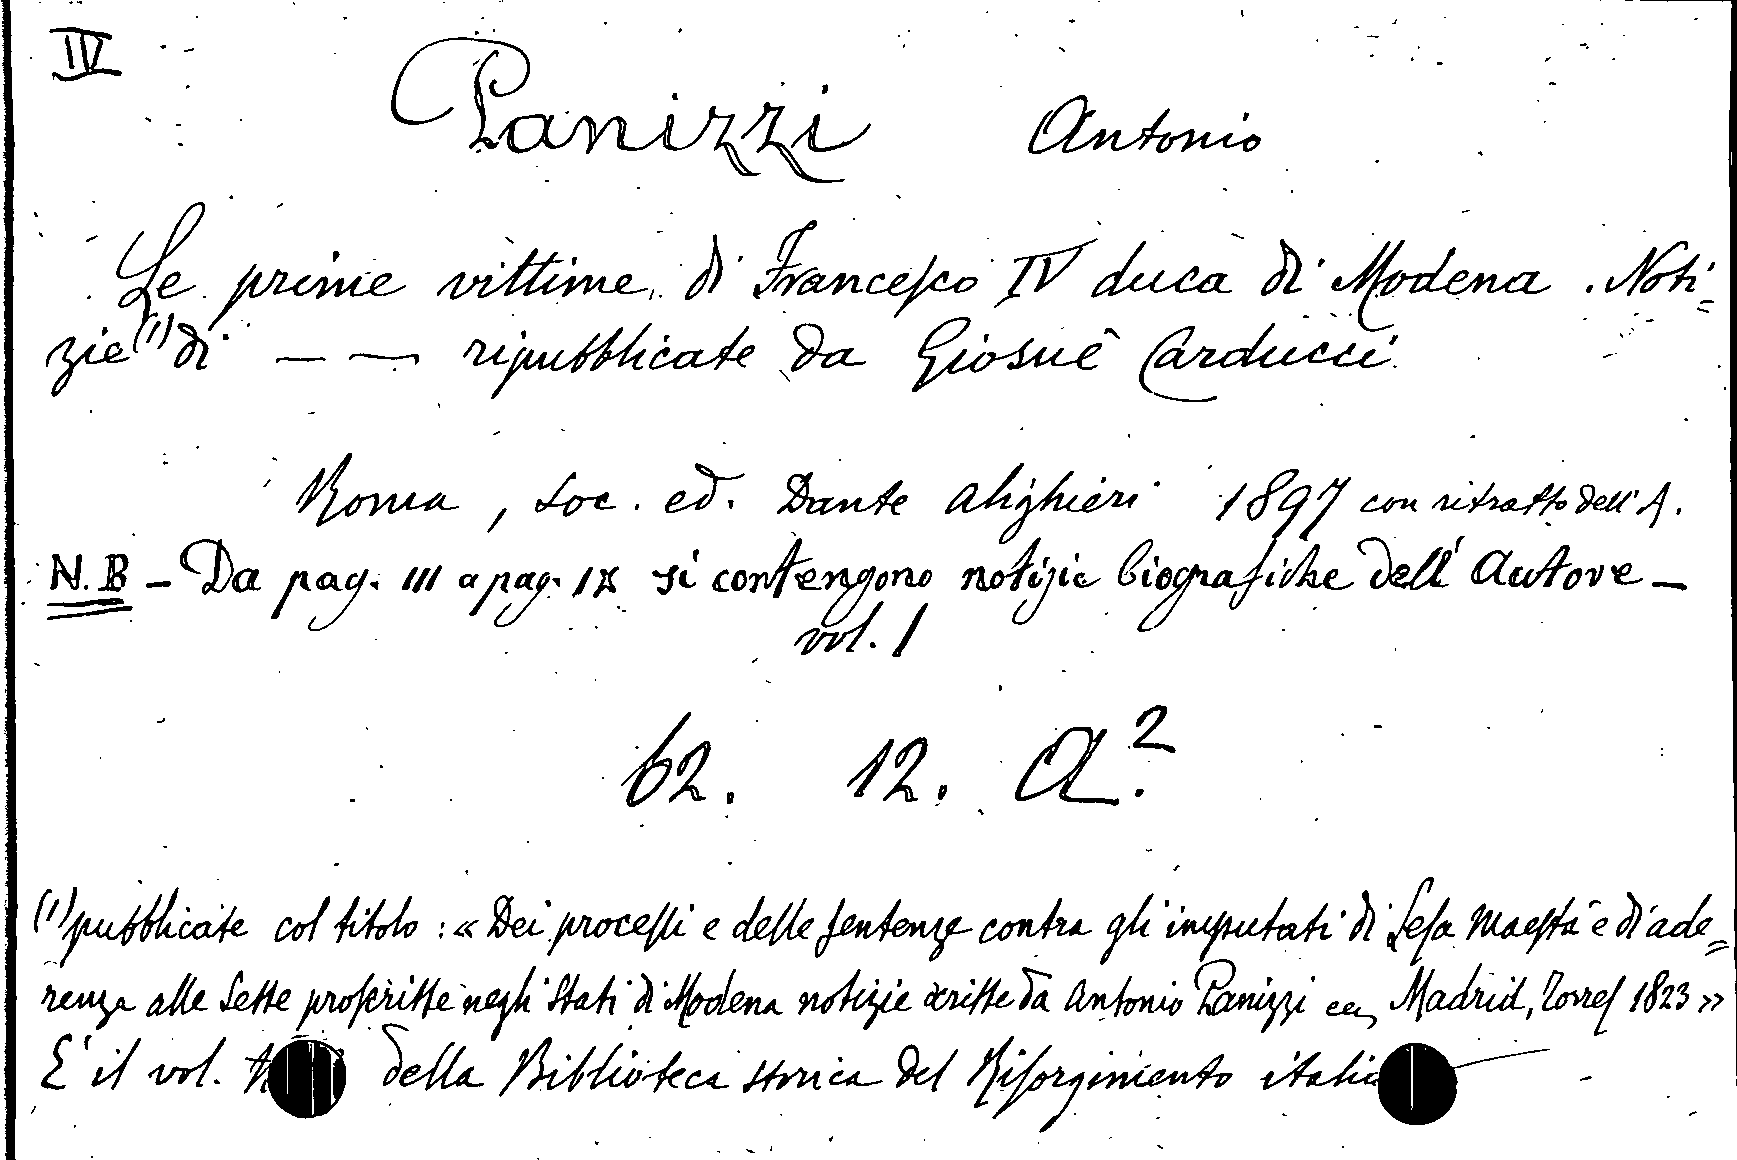 IV
Panizzi Antonio
Le prime vittime di Francesco IV duca di Modena. Noti=
zie (1) di — — ripubblicate da Giosuè Carducci
Roma, soc. ed. Dante Alighieri 1897 con ritratto dell'A.
N.B - Da pag. III a pag. IX si contengono notizie biografiche dell'Autore -
vol. 1
62. 12. A2.
(1) pubblicate col titolo: « Dei processi e delle sentenze contra gli imputati di Lesa Maestà e di ade=
renza alle Sette proscritte negli Stati di Modena notizie scritte da Antonio Panizzi Madrid, Torres 1823 »
E' il vol. della Biblioteca storica del Risorgimento